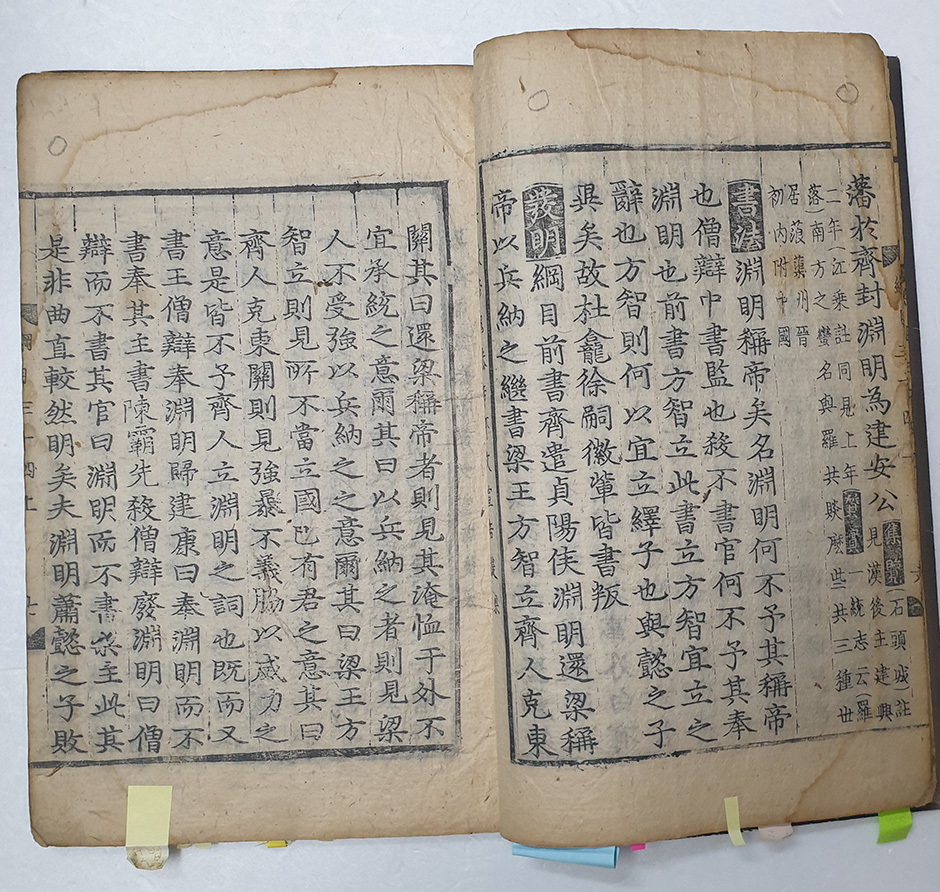 藩於齊封淵明為建安公
集覽(石頭城)註
見漢後主建興
二年江乘註同見上年 一統志云(羅
落)南方之蠻名與羅共 些共三種世
居蒗蕖州晉
初內附中國
書法淵明稱帝矣名淵明何不予其稱帝
也僧辯中書監也殺不書官何不予其奉
淵明也前書方智立此書立方智宜立之
辭也方智則何以宜立繹子也與懿之子
異矣故杜龕徐嗣徽軰皆書叛
發明綱目前書齊遣貞陽侯淵明還梁稱
帝以兵納之繼書梁王方智立齊人克東
關其曰還梁稱帝者則見其淹恤于外不
宜承統之意爾其曰以兵納之者則見梁
人不受強以兵納之之意爾其曰梁王方
智立則見所不當立國已有君之意其曰
齊人克東關則見強暴不義脇以威力之
意是皆不予齊人立淵明之詞也既而又
書王僧辯奉淵明歸建康曰奉淵明而不
書奉其主書陳霸先殺僧辯廢淵明曰僧
辯而不書其官曰淵明而不書梁主此其
是非曲直較然明矣夫淵明蕭懿之子敗
綱目三十四上 七